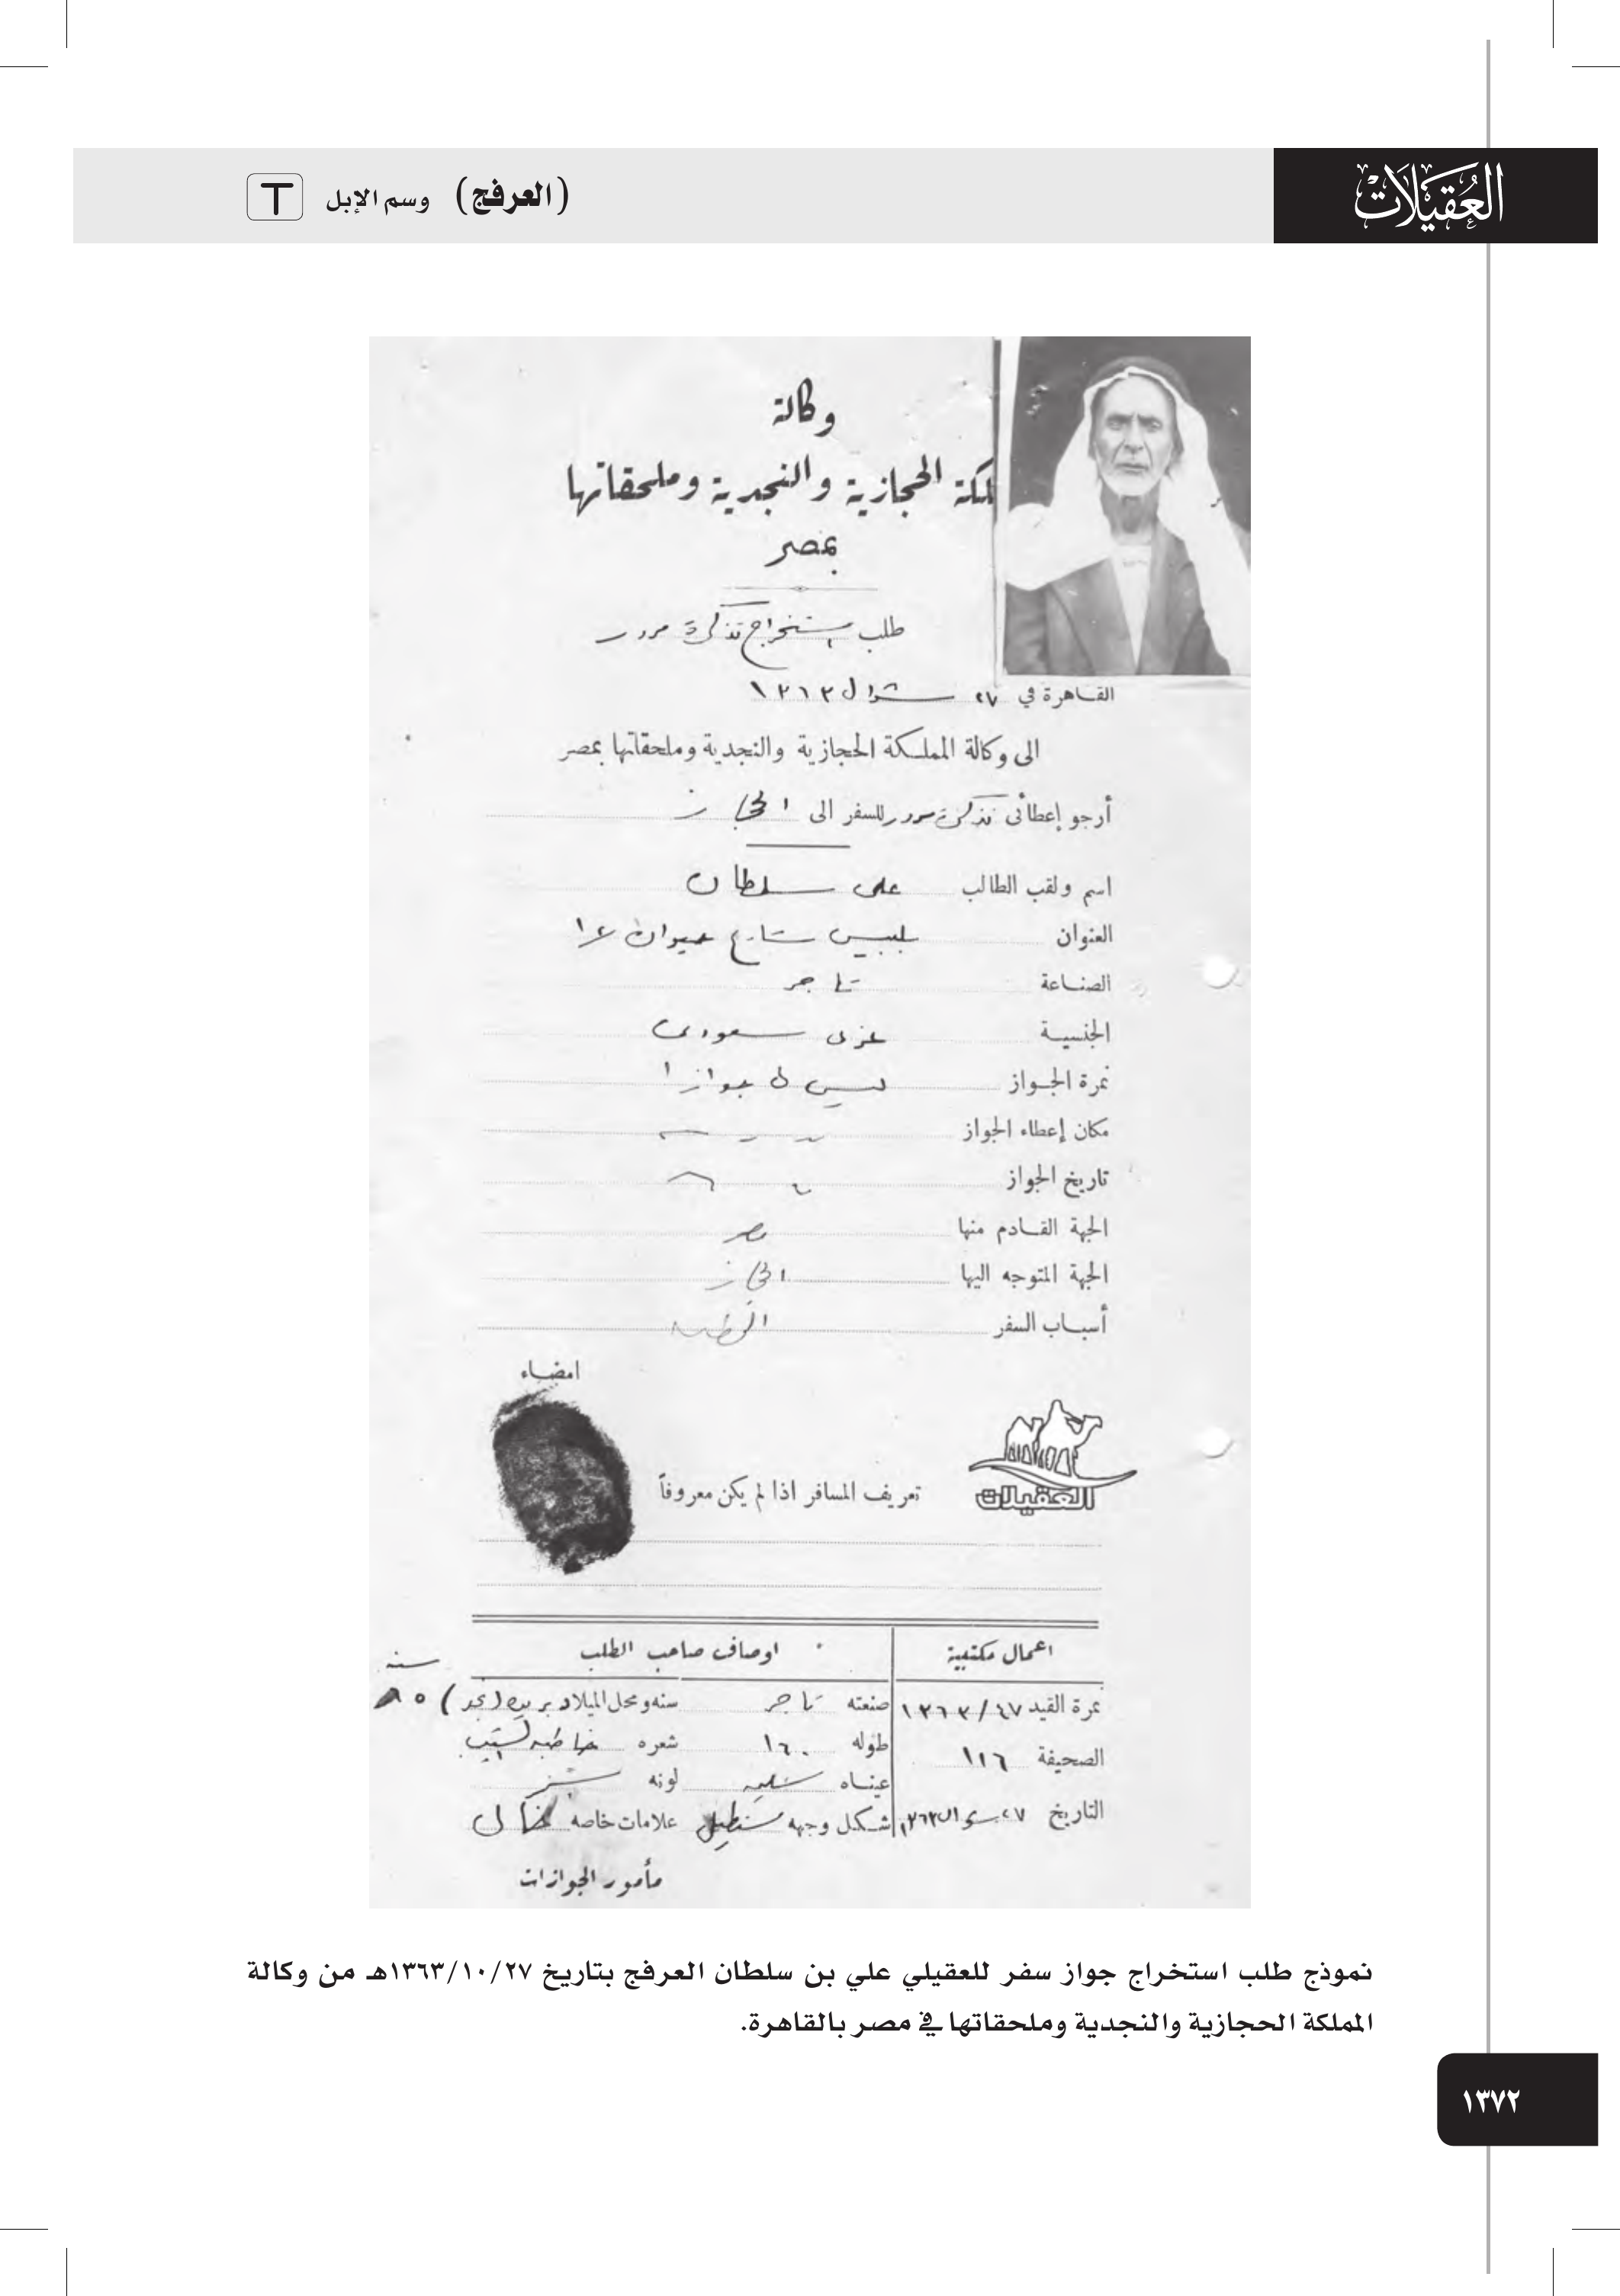 العُقَيْلَاتْ
(العرفج) وسم الإبل T
وكالة
لكة الحجازية والنجدية وملحقاتها
بمصر
طلب استخراج تذكرة مرور
القاهرة في ٢٧ شوال ١٣٦٣
الى وكالة المملكة الحجازية والنجدية وملحقاتها بمصر
أرجو إعطائى تذكرة مرور للسفر الى الحجاز
اسم ولقب الطالب على سلطان
العنوان بلبيس شارع
الصناعة تاجر
الجنسية عربى سعودى
نمرة الجواز ليس لى جواز
مكان إعطاء الجواز
تاريخ الجواز
الجهة القادم منها مصر
الجهة المتوجه اليها الحجاز
أسباب السفر
امضاء
العقيلات
تعريف المسافر اذا لم يكن معروفاً
اعمال مكتبية اوصاف صاحب الطلب سنه
نمرة القيد ٤٧/١٣٦٣ صنعته تاجر سنه ومحل الميلاد بريده (نجد)
الصحيفة ١١٦ طوله ١٦٠ شعره
عيناه لونه
التاريخ ٢٧ شوال ١٣٦٣ شكل وجهه مستطيل علامات خاصه
مأمور الجوازات
نموذج طلب استخراج جواز سفر للعقيلي علي بن سلطان العرفج بتاريخ ١٣٦٣/١٠/٢٧هـ من وكالة
المملكة الحجازية والنجدية وملحقاتها في مصر بالقاهرة.
١٣٧٢